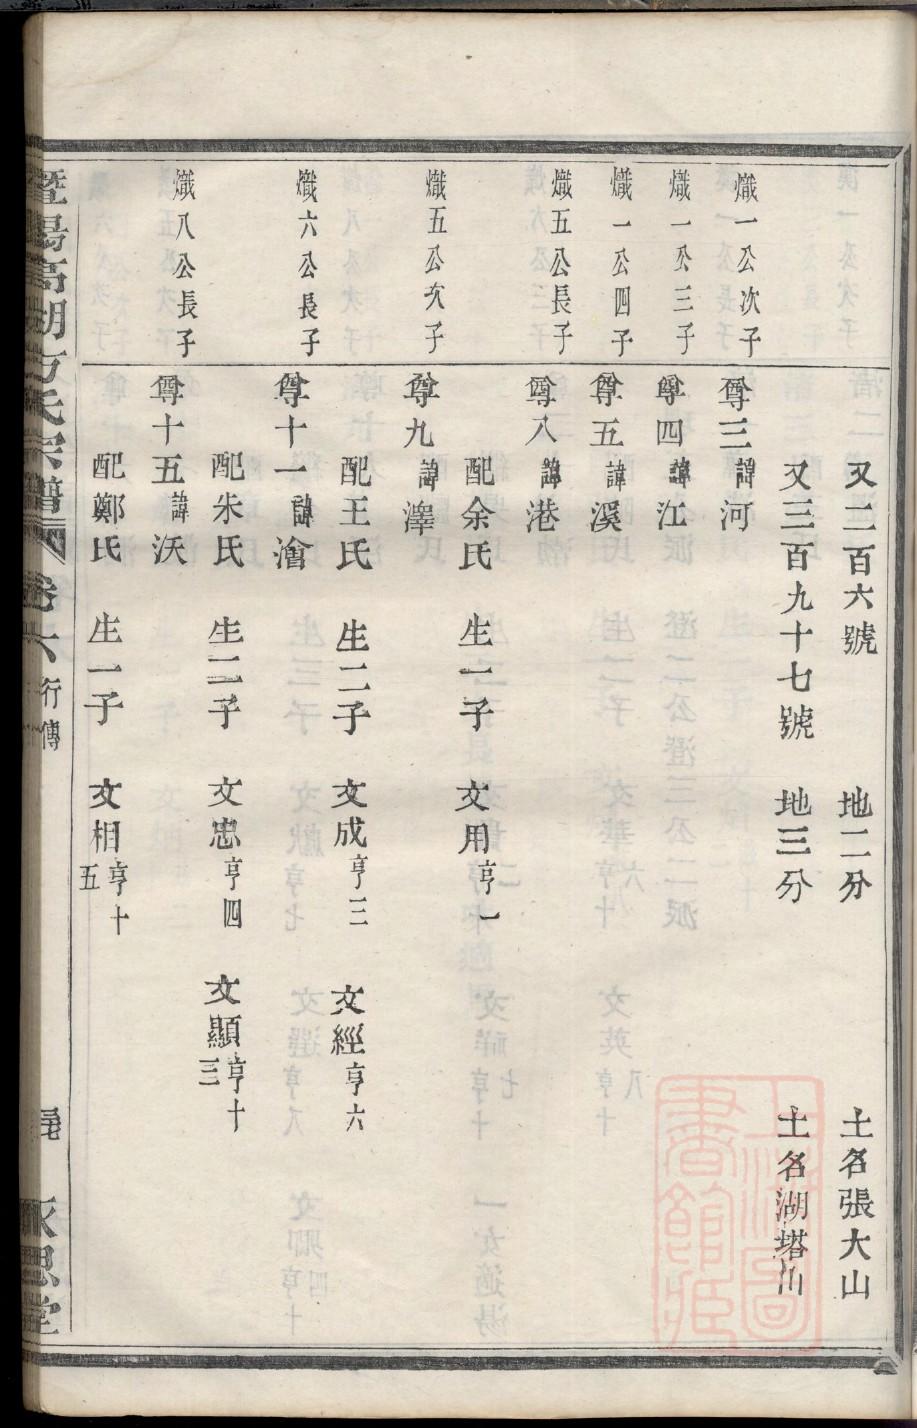 又二百六號 地二分 土名張大山
又三百九十七號 地三分 土名湖塔川
熾一公次子 尊三諱河
熾一公三子 尊四諱江
熾一公四子 尊五諱溪
熾五公長子 尊八諱港
配余氏 生一子 文用亨一
熾五公次子 尊九諱澤
配王氏 生二子 文成亨三 文經亨六
熾六公長子 尊十一諱澮
配朱氏 生二子 文忠亨四 文顯亨十三
熾八公長子 尊十五諱沃
配鄭氏 生一子 文相亨十五
暨陽高湖方氏宗譜 卷六 行傳 永思堂